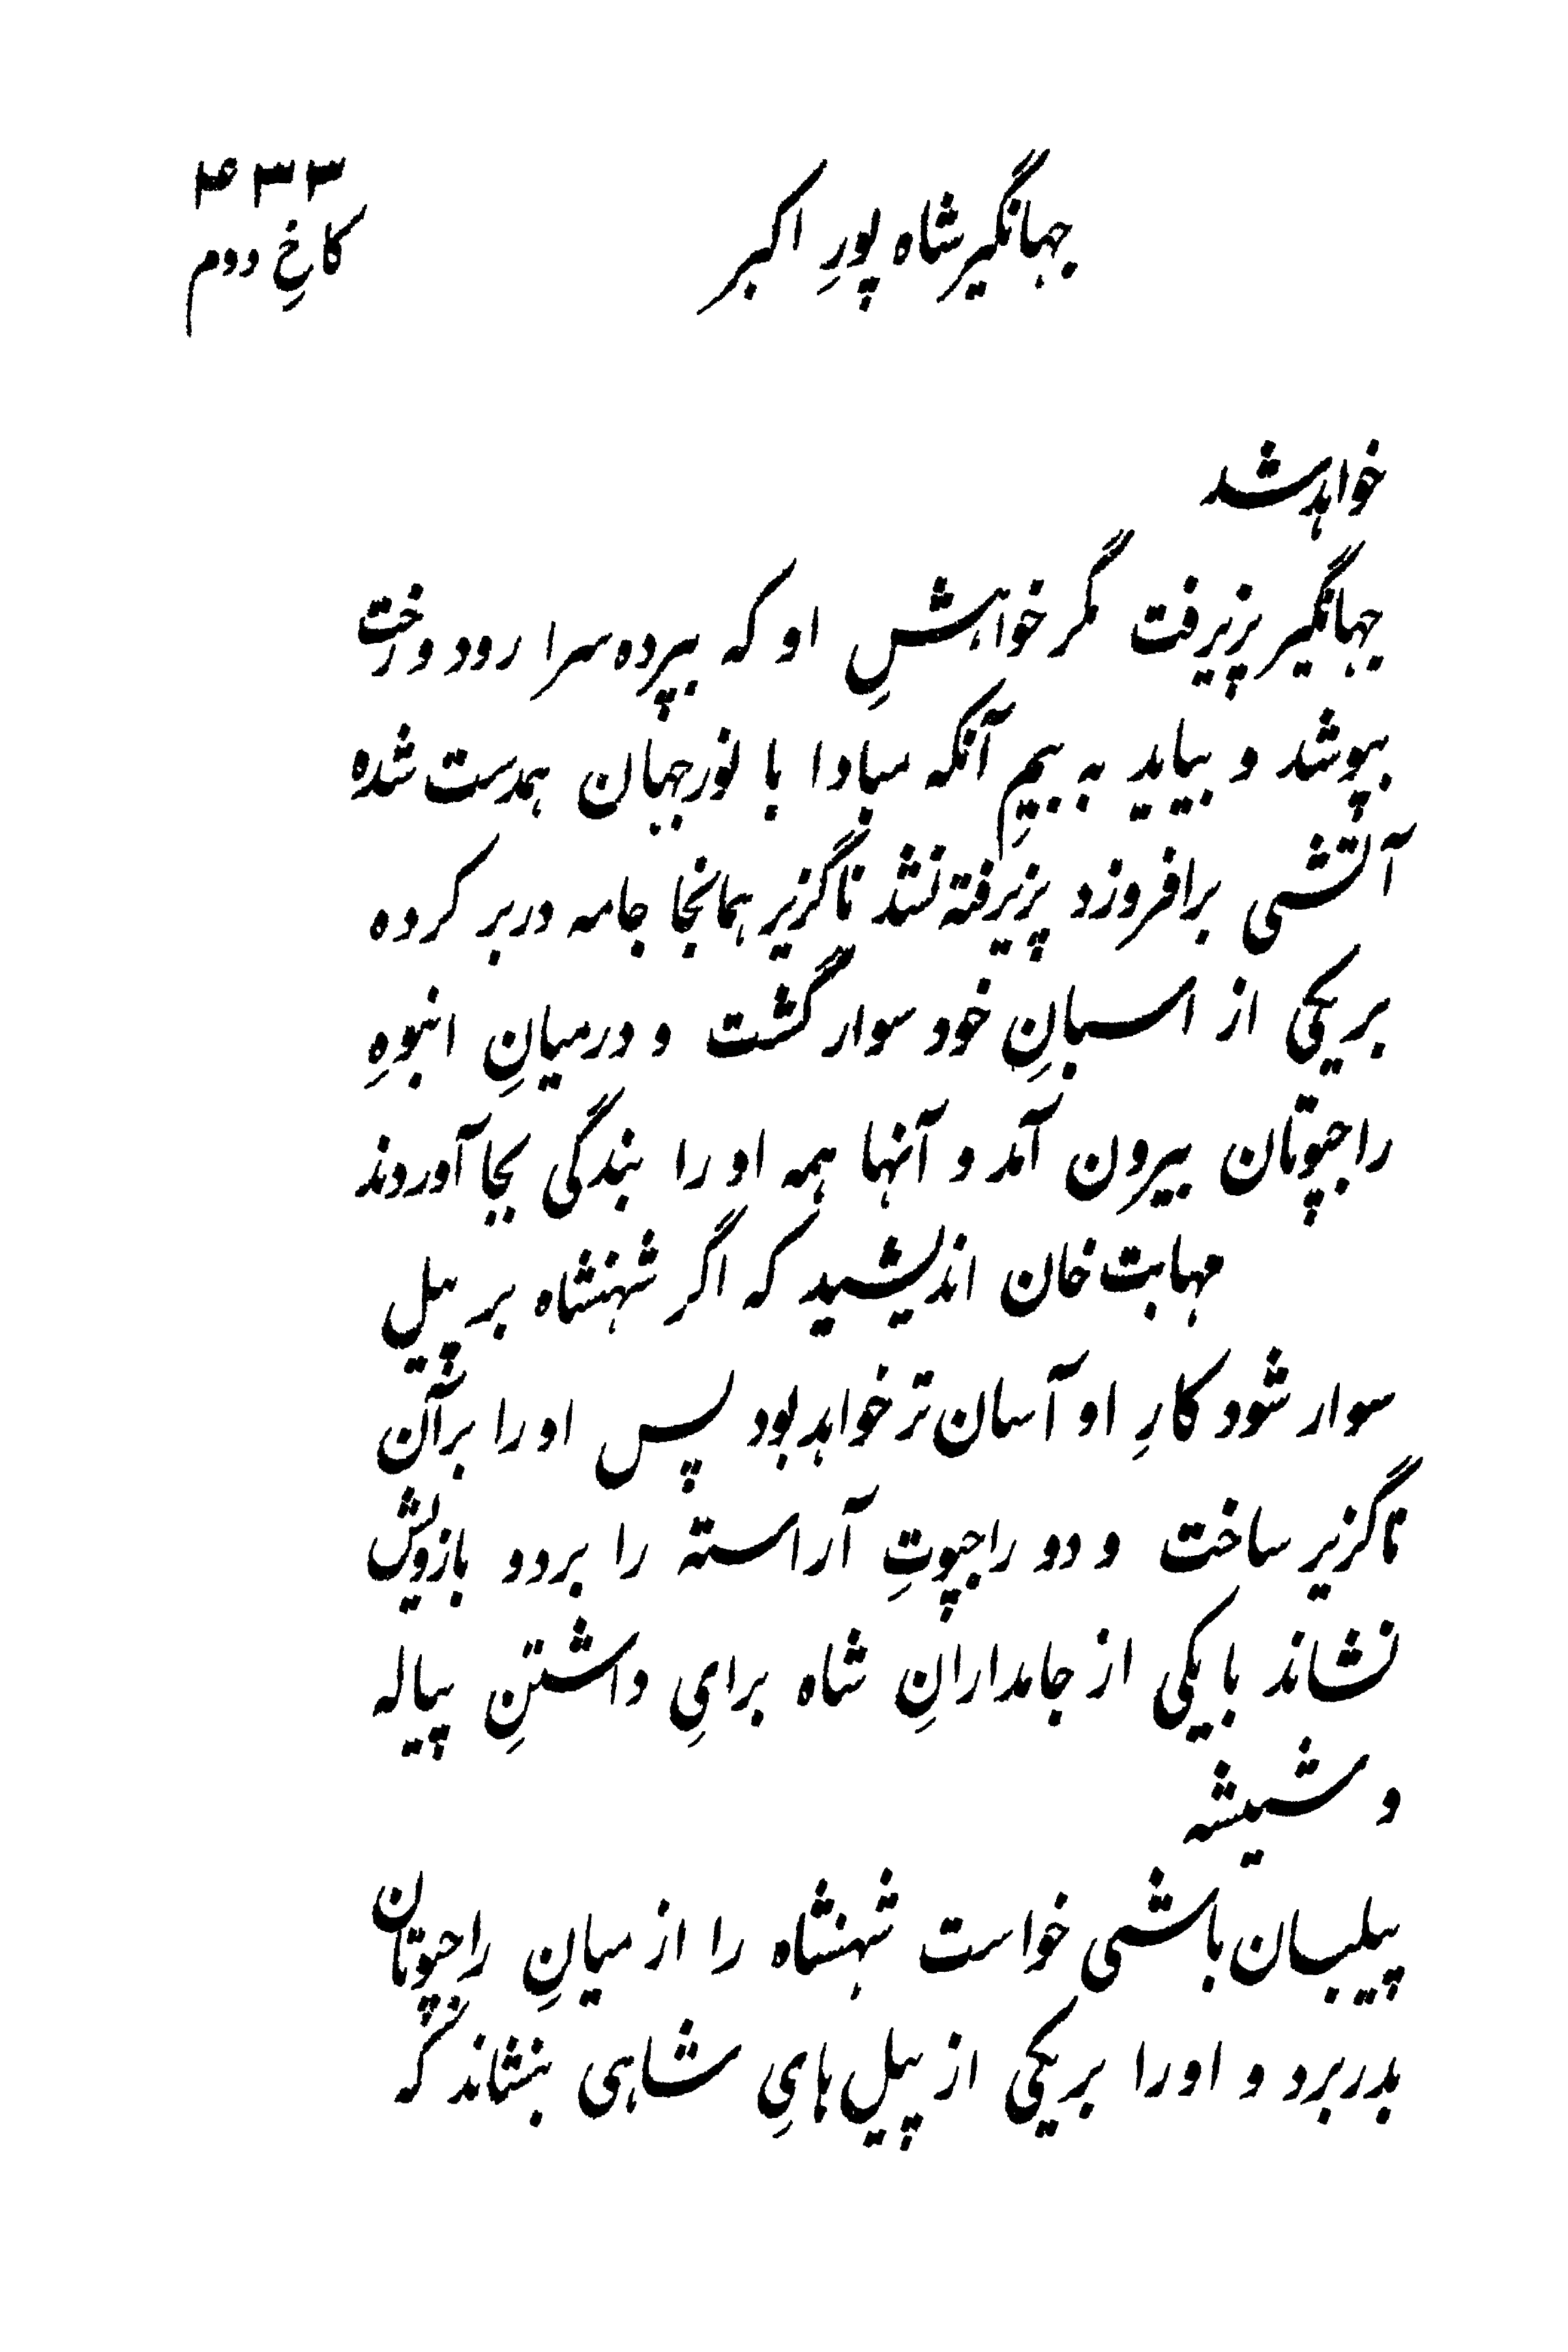 ۴۳۳
جهانگیر شاه پورِ اکبر
کاخِ دوم
خواهد شد
جهانگیر پزیرفت مگر خواهشِ او که بپرده سرا رود و رخت
بپوشد و بیاید به بیمِ آنکه مبادا با نورجهان همدست شده
آتشی برافروزد پزیرفته نشد ناگزیر همانجا جامه دربر کرده
بر یکی از اسبانِ خود سوار گشت و درمیانِ انبوهِ
راجپوتان بیرون آمد و آنها همه او را بندگی بجا آوردند
مهابت خان اندیشید که اگر شهنشاه بر پیل
سوار شود کارِ او آسان تر خواهد بود پس او را برآن
ناگزیر ساخت و دو راجپوتِ آراسته را بر دو بازویش
نشاند با یکی از جامدارانِ شاه برایِ داشتنِ پیاله
و شیشه
پیلبان باشی خواست شهنشاه را از میانِ راجپوتان
بدر برد و اورا بر یکی از پیل هایِ شاهی بنشاند که